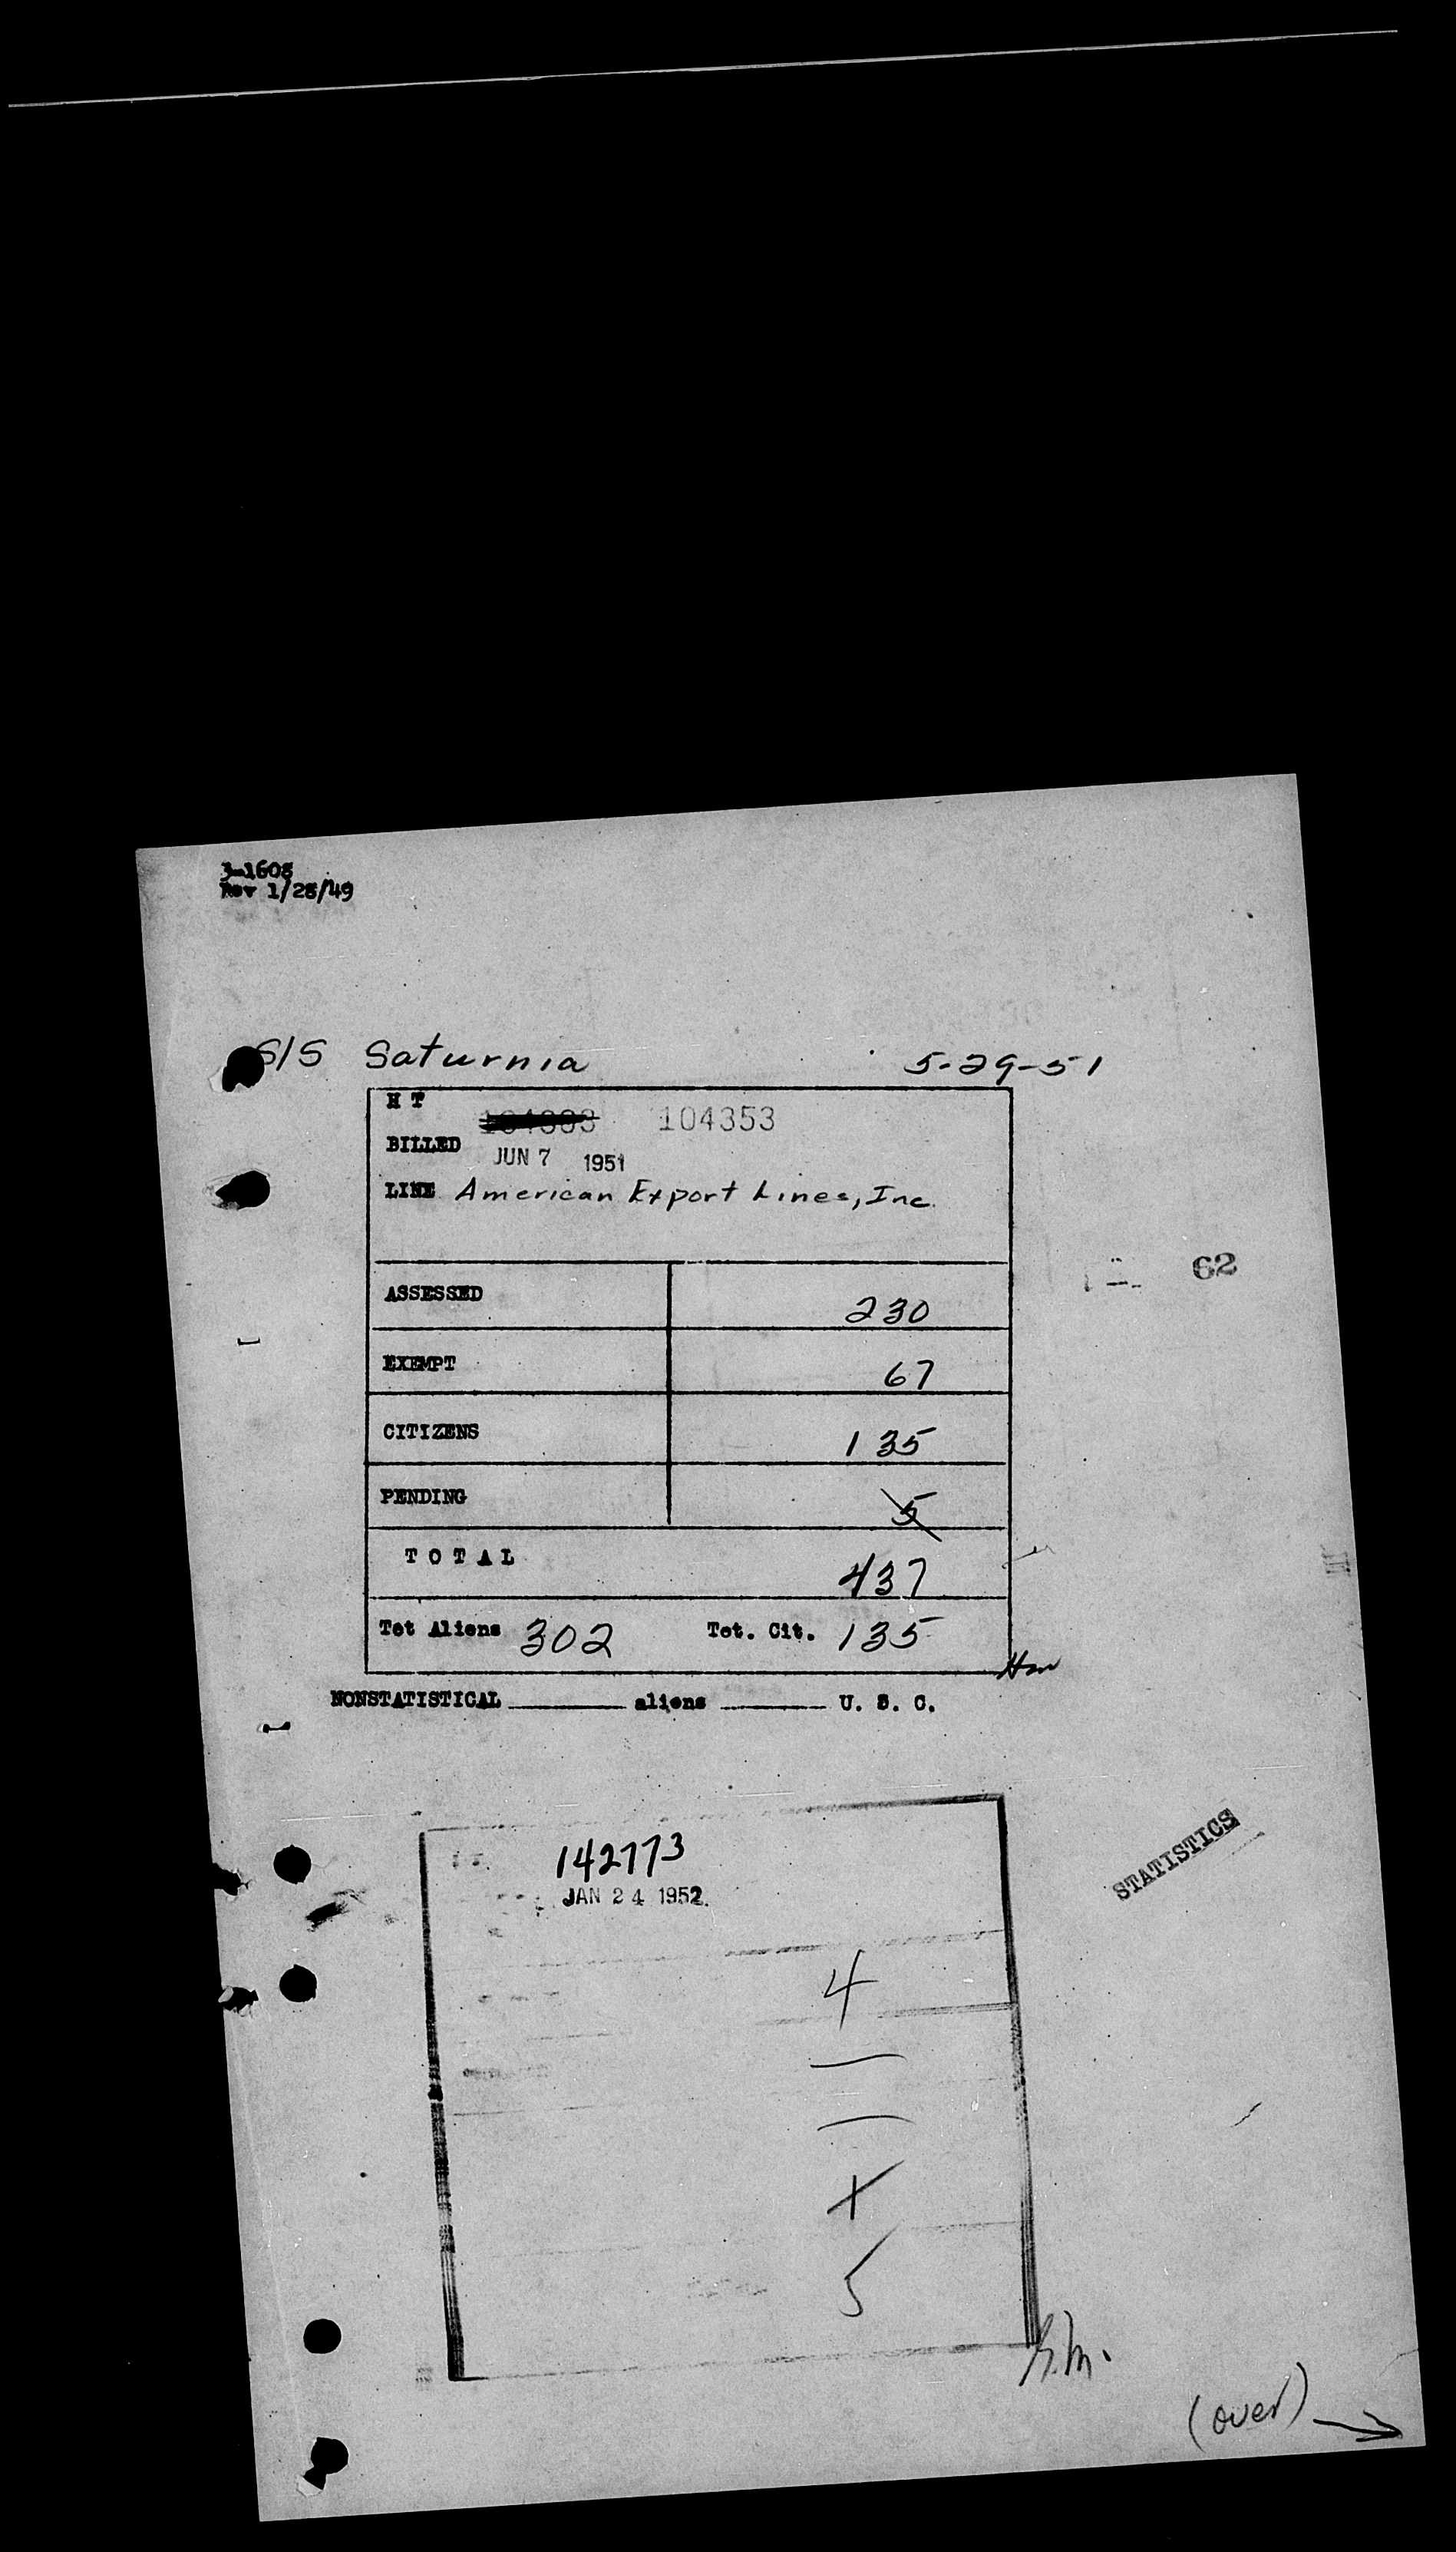 3-1608
Rev 1/28/49
S/S Saturnia 5-29-51
H T
104353
BILLED JUN 7 1951
LINE American Export Lines, Inc.
62
ASSESSED 230
EXEMPT 67
CITIZENS 135
PENDING 5
TOTAL 437
Tot Aliens 302 Tot. Cit. 135
NONSTATISTICAL aliens U. S. C.
STATISTICS
142773
JAN 24 1952
4
—
—
5
(over) →